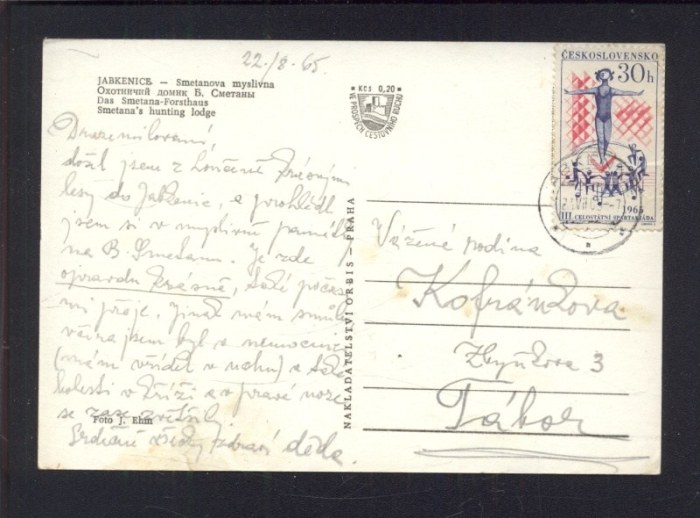 22./8. 65.
JABKENICE — Smetanova myslivna
Охотничий домик Б. Сметаны
Das Smetana-Forsthaus
Smetana's hunting lodge
Kčs 0,20
VE PROSPĚCH CESTOVNÍHO RUCHU
ČESKOSLOVENSKO
30h
1965
III. CELOSTÁTNÍ SPARTAKIÁDA
Drazí milovaní,
došel jsem z Loučeně krásnými
lesy do Jabkenic, a prohlédl
jsem si v myslivně památky
na B. Smetanu. Je zde
opravdu krásně, také počasí
mi přeje. Jinak mám smůlu
včera jsem byl v nemocnici
(mám vřídek v uchu) a také
bolesti v kříži a v pravé noze
se zase zvětšily
Srdečně všechny zdraví děda.
Foto J. Ehm
NAKLADATELSTVÍ ORBIS - PRAHA
Vážená rodina
Kofránkova
3
Tábor